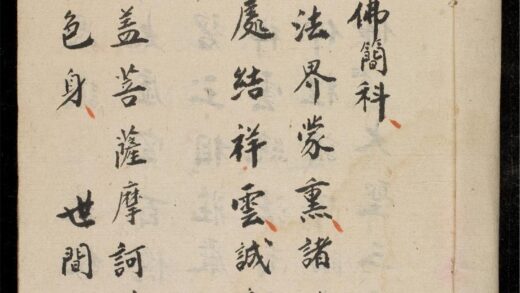 佛簡科
法界蒙熏諸
處結祥雲誠
蓋菩薩摩訶
色身 世間